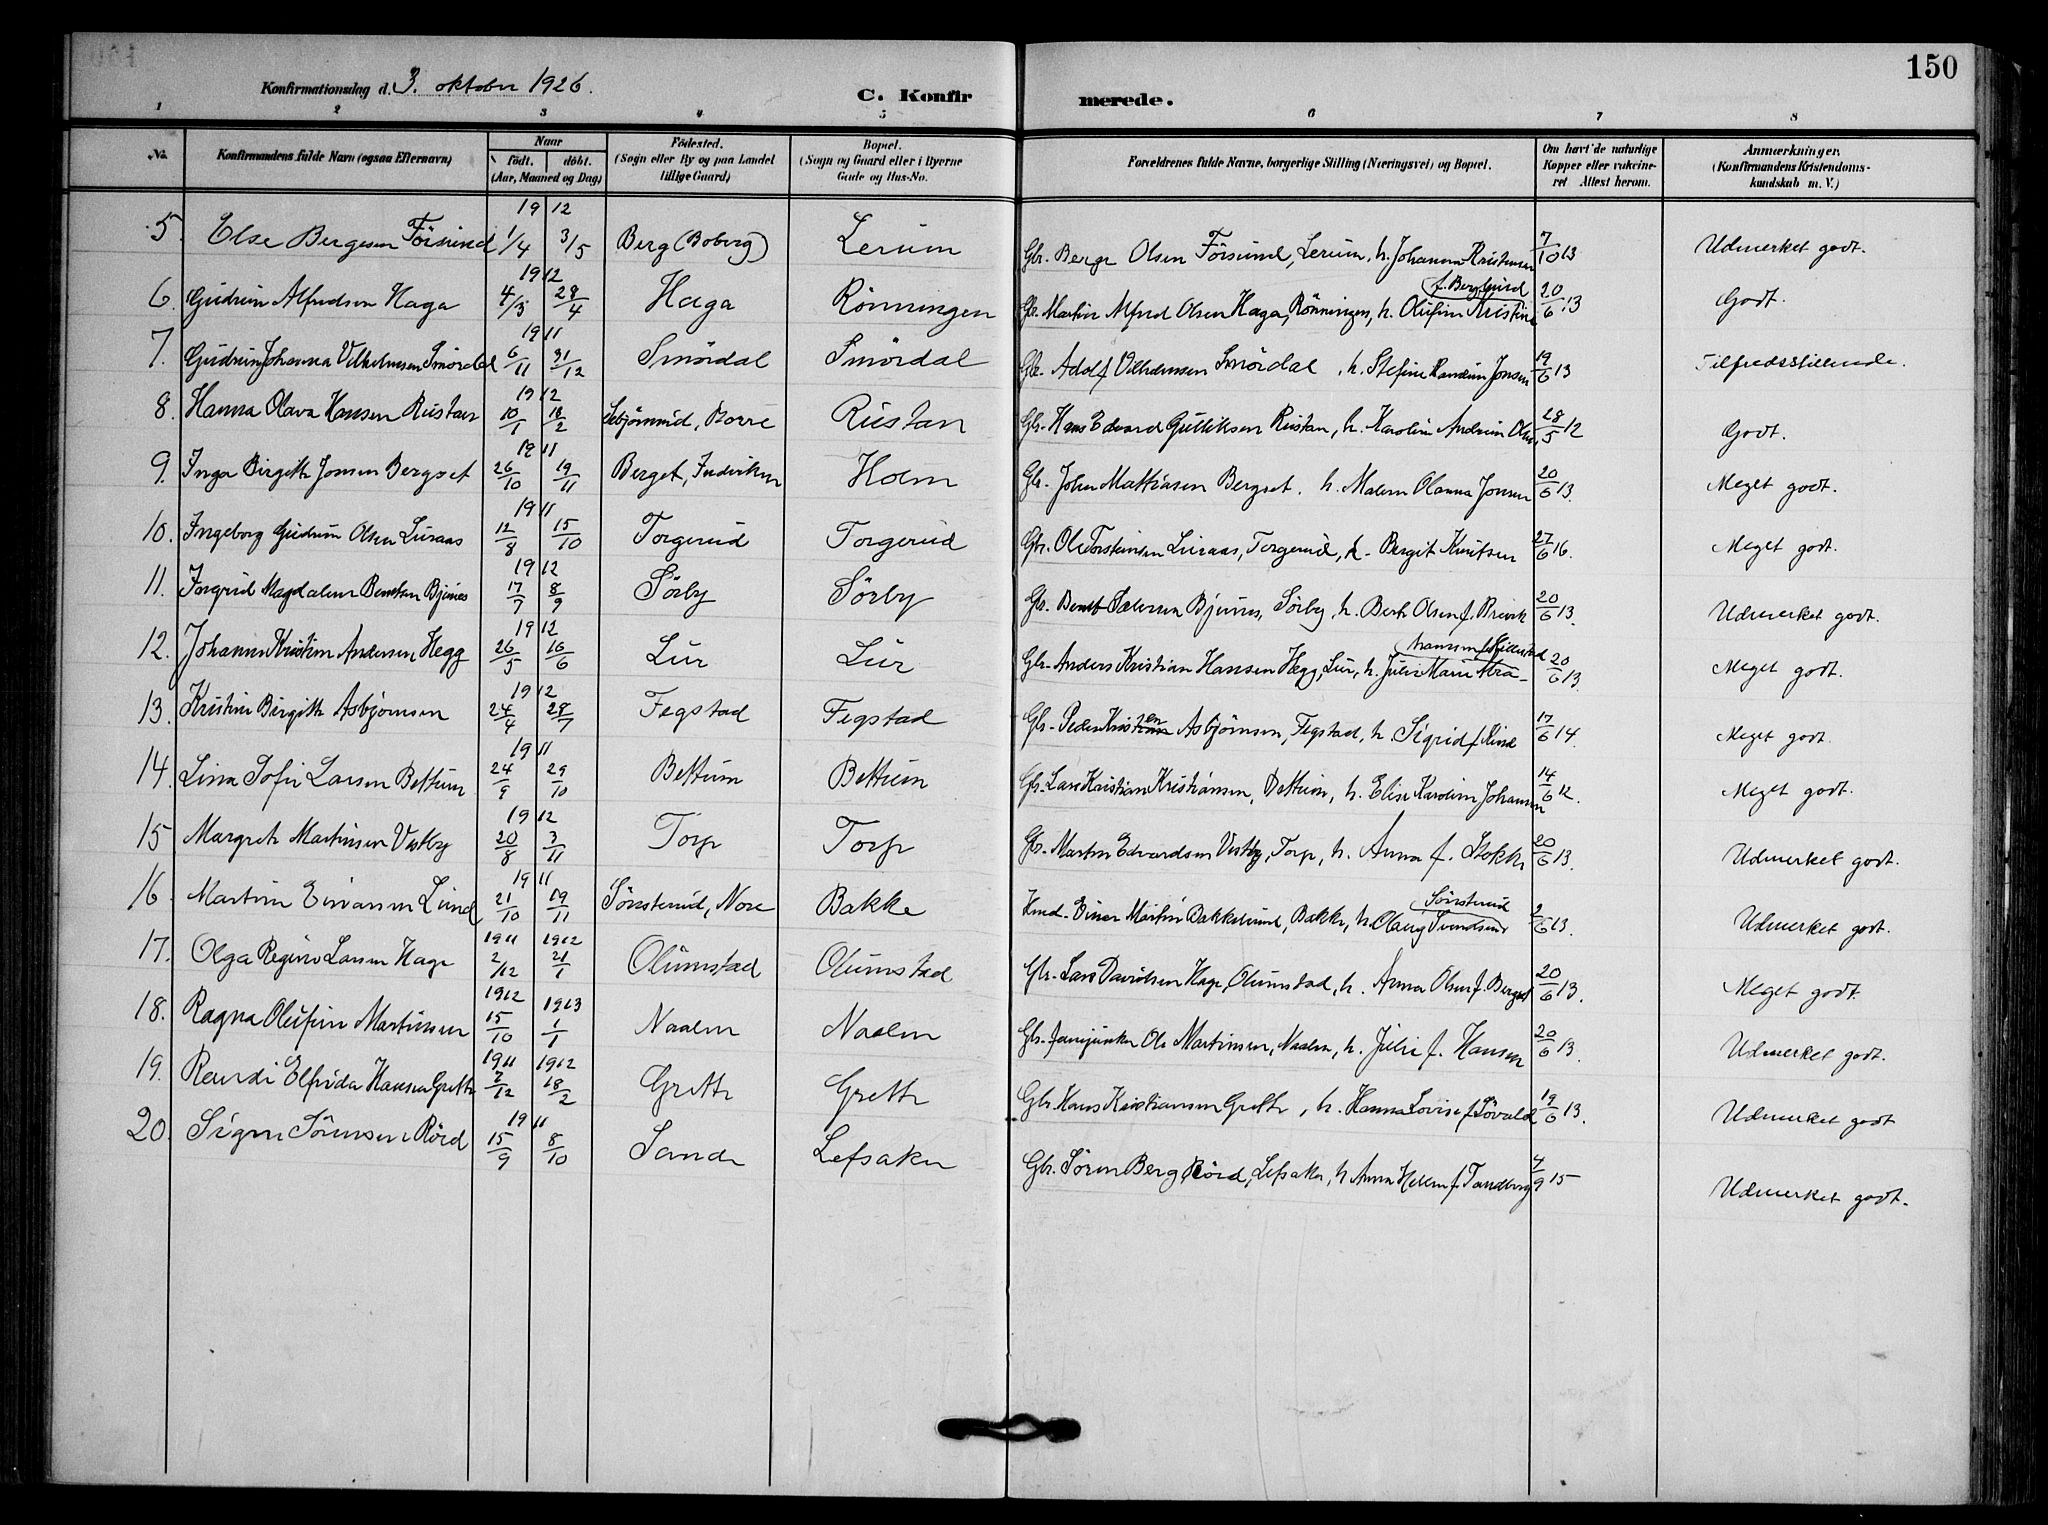 150
Konfirmationsdag d. 3. oktober 1926.
C. Konfirmerede.
1 2 3 4 5 6 7 8
No. Konfirmandens fulde Navn (ogsaa Efternavn) Naar födt. döbt. (Aar, Maaned og Dag) Födested. (Sogn eller By og paa Landet tillige Gaard) Bopæl. (Sogn og Gaard eller i Byerne Gade og Hus-No. Forældrenes fulde Navne, borgerlige Stilling (Næringsvei) og Bopæl. Om havt de naturlige Kopper eller vakcineret Attest herom. Anmærkninger. (Konfirmandens Kristendomskundskab m. V.)
19 12
5. Else Bergesen Försund 1/4 3/5 Berg (Boberg) Lerum Gbr. Berge Olsen Försund, Lerum, h. Johanna Kristensen 7/10 13 Udmerket godt.
19 12
6. Gudrun Alfredsen Haga 4/3 28/4 Haga Rönningen Gbr. Martin Alfred Olsen Haga, Rönningen, h. Olufine Kristine 20/6 13 Godt.
19 11
7. Gudrun Johanna Vilhelmsen Smördal 6/11 31/12 Smördal Smördal Gbr. Adolf Vilhelmsen Smördal, h. Stefine Jonsen 19/6 13 Tilfredsstillende.
19 12
8. Hanna Olava Hansen Rustan 10/1 18/2 Borre Rustan Gbr. Hans Edvard Gulliksen Rustan, h. Karoline Andrine Olsen 28/5 12 Godt.
19 11
9. Inga Birgitte Jonsen Bergset 26/10 19/11 Berget, Holm Gbr. John Mathiasen Bergset. h. Malene Olanna Jonsen 20/6 13. Meget godt.
19 11
10. Ingeborg Gudrun Olsen Luraas 12/8 15/10 Torgerud Torgerud Gbr. Ole Torstensen Luraas, Torgerud, h. Bergit Knutsen 27/6 16. Meget godt.
19 12
11. Ingrid Magdalene Bentsen Bjernes 17/7 8/9 Sörby Sörby Gbr. Bent Bjernes, Sörby, h. Berte Olsen f. Brevik 20/6 13. Udmerket godt.
19 12
12. Johanne Kristine Andersen Hegg 26/5 16/6 Lur Lur Gbr. Anders Kristian Hansen Hegg, Lur, h. Julie Marie Abrahamsen 20/6 13. Meget godt.
19 12
13. Kristine Birgitte Asbjørnsen 24/4 28/7 Fegstad Fegstad Gbr. Peder Kristen Asbjørnsen, Fegstad, h. Sigrid f. Rud 17/6 14. Meget godt.
19 11
14. Lina Sofie Larsen Bettum 24/9 29/10 Bettum Bettum Gbr. Lars Kristian Kristiansen, Bettum, h. Elise Karoline Johansen 14/6 12. Meget godt.
19 12
15 Margrethe Martinsen Vestby 20/8 3/11 Torp Torp Gbr. Martin Edvardsen Vestby, Torp, h. Anna f. Stokke 20/6 13. Udmerket godt.
19 11
16. Martine Einarsen Lund 21/10 19/11 Sönsterud, Nore Bakke Einar Martin Bakkelund, Bakke, h. Olaug Svendsen Sönsterud 2/6 13. Udmerket godt.
1911 1912
17. Olga Regine Larsen Hage 2/12 21/1 Olumstad Olumstad Gbr. Lars Davidsen Hage, Olumstad, h. Anna Olsen f. Berget 20/6 13. Meget godt.
1912 1913
18. Ragna Olufine Martinsen 15/10 1/1 Naalen Naalen Gbr. Ole Martinsen, Naalen, h. Julie f. Hansen 20/6 13. Udmerket godt.
1911 1912
19. Randi Elfrida Hansen Grette 2/12 18/2 Grette Grette Gbr. Hans Kristiansen Grette, h. Hanna Lovise f. 19/6 13. Udmerket godt
19 11
20. Signe Sörensen Rörd 15/9 8/10 Sande Lefsaker Gbr. Sören Berg Rörd, Lefsaker, h. Anna Helene f. Tandberg 4/9 15 Udmerket godt.